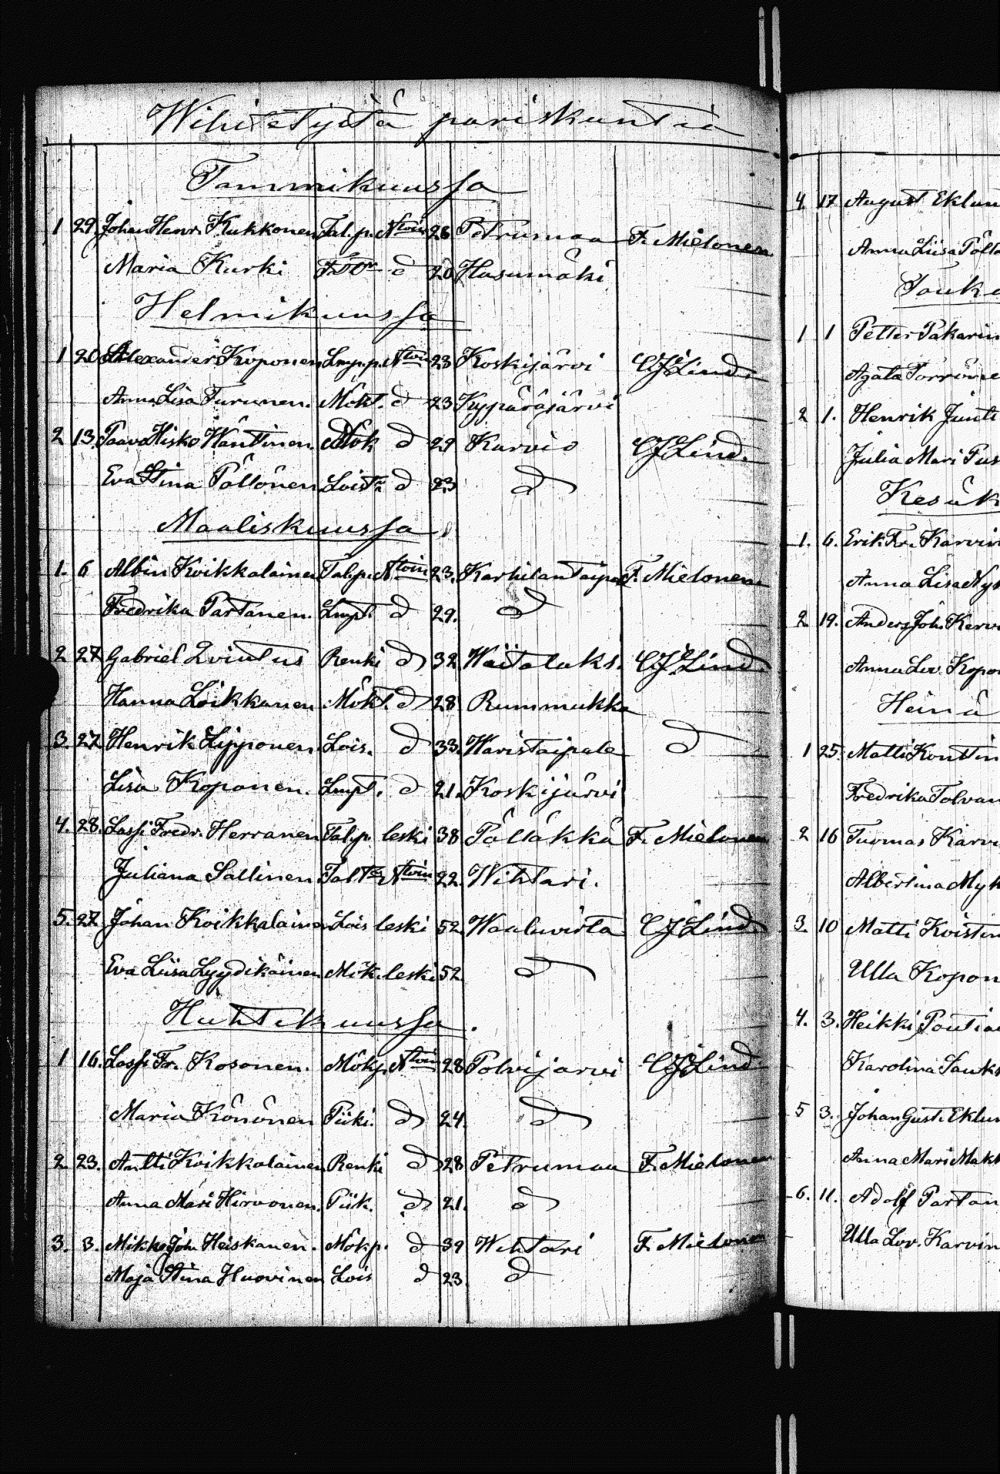 Wihitetyitä pariskuntia
Tammikuussa
1 29 Johan Henr. Kukkonen Tal.p. Ntoin 26 Petrumaa F. Mielonen
Maria Kurki d 20 Hasumäki
Helmikuussa
1 20 Alexander Koponen Lmp.p. Ntoin 23 Koskijärvi CJ Lind
Anna Lisa Turunen. Mökt. d 23 Kypäräjärvi
2 13. Paava Hisko Häntinen Mök d 29 Karvio CJ Lind.
Eva Stina Pöllönen Loist. d 23 d
Maaliskuussa
1. 6 Albin Koikkalainen Talp. Ntoin 23. Karhilantaipal F. Mielonen
Fredrika Partanen. Lmpt. d 29. d
2 27 Gabriel Qvintus Renki d 32 Waitalaks. CJ Lind
Hanna Loikkanen Mökt. d 28 Rummukka
3. 27 Henrik Lipponen Lois. d 33. Waristaipale d
Lisa Koponen. Lmpt. d 21. Koskijärvi
4. 28. Lassi Fredr. Herranen Talp. leski 38 Pölläkkä F. Mielonen
Juliana Sallinen Tal.tr Ntoin 22 Wihtari.
5. 27 Johan Koikkalainen Lois leski 52 Waaluvirta CJ Lind
Eva Liisa Lyydikäinen Mök. leski 52 d
Huhtikuussa.
1 16. Lassi Fr. Kosonen. Mökp. Ntoin 28 Polvijarvi CJ Lind
Maria Könönen Piiki. d 24. d
2 23. Antti Koikkalainen Renki d 28 Petrumaa F. Mielonen
Anna Mari Hirvonen. Piik. d 21. d
3. 3. Mikko Joh Heiskanen. Mökp. d 39 Wihtari F. Mielonen
Maja Stina Huovinen Lois d 23 d
4 17 August Eklun
Anna Liisa Pöllö
Touko
1 1 Petter Pakarin
Agata Torröne
2 1. Henrik Juuti
Julia Mari Pus
Kesäk
1. 6. Erik Fr. Karvin
Anna Lisa Nys
2 19. Anders Joh. Kerv
Anna Lov. Kopo
Heinä
1 25. Matti Konttin
Fredrika Tolvan
2 16 Tuomas Karvi
Albertina Myk
3. 10 Matti Koistin
Ulla Kopon
4. 3. Heikki Poutia
Karolina Sauk
5 3. Johan Gust. Eklun
Anna Mari Makk
6. 11. Adolf Partan
Ulla Lov. Karvin